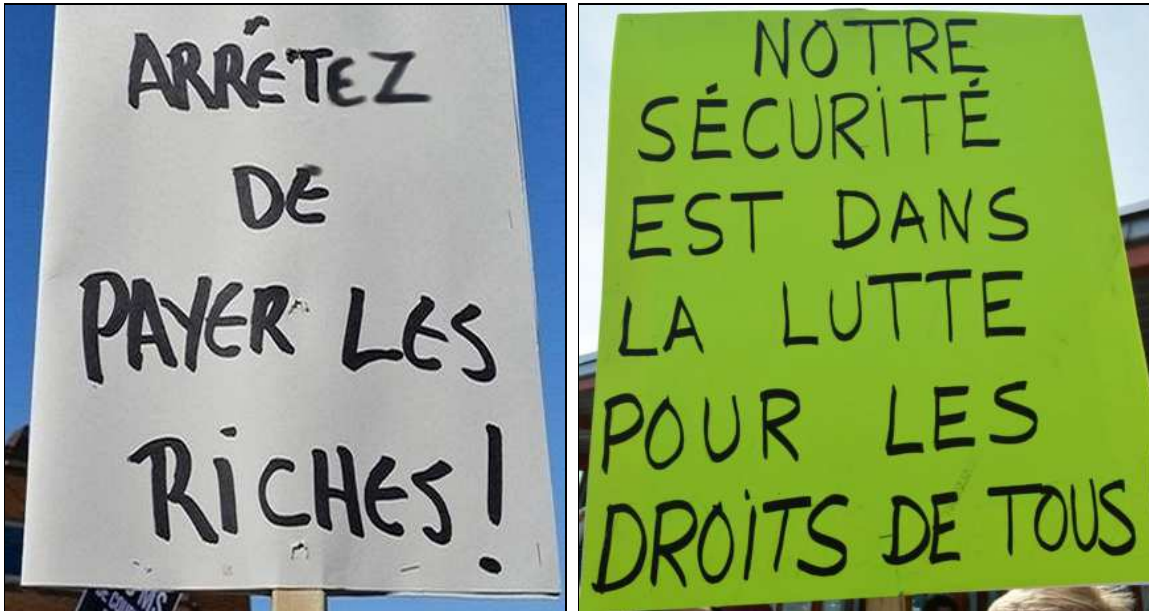 ARRÊTEZ
DE
PAYER LES
RICHES!
NOTRE
SÉCURITÉ
EST DANS
LA LUTTE
POUR LES
DROITS DE TOUS